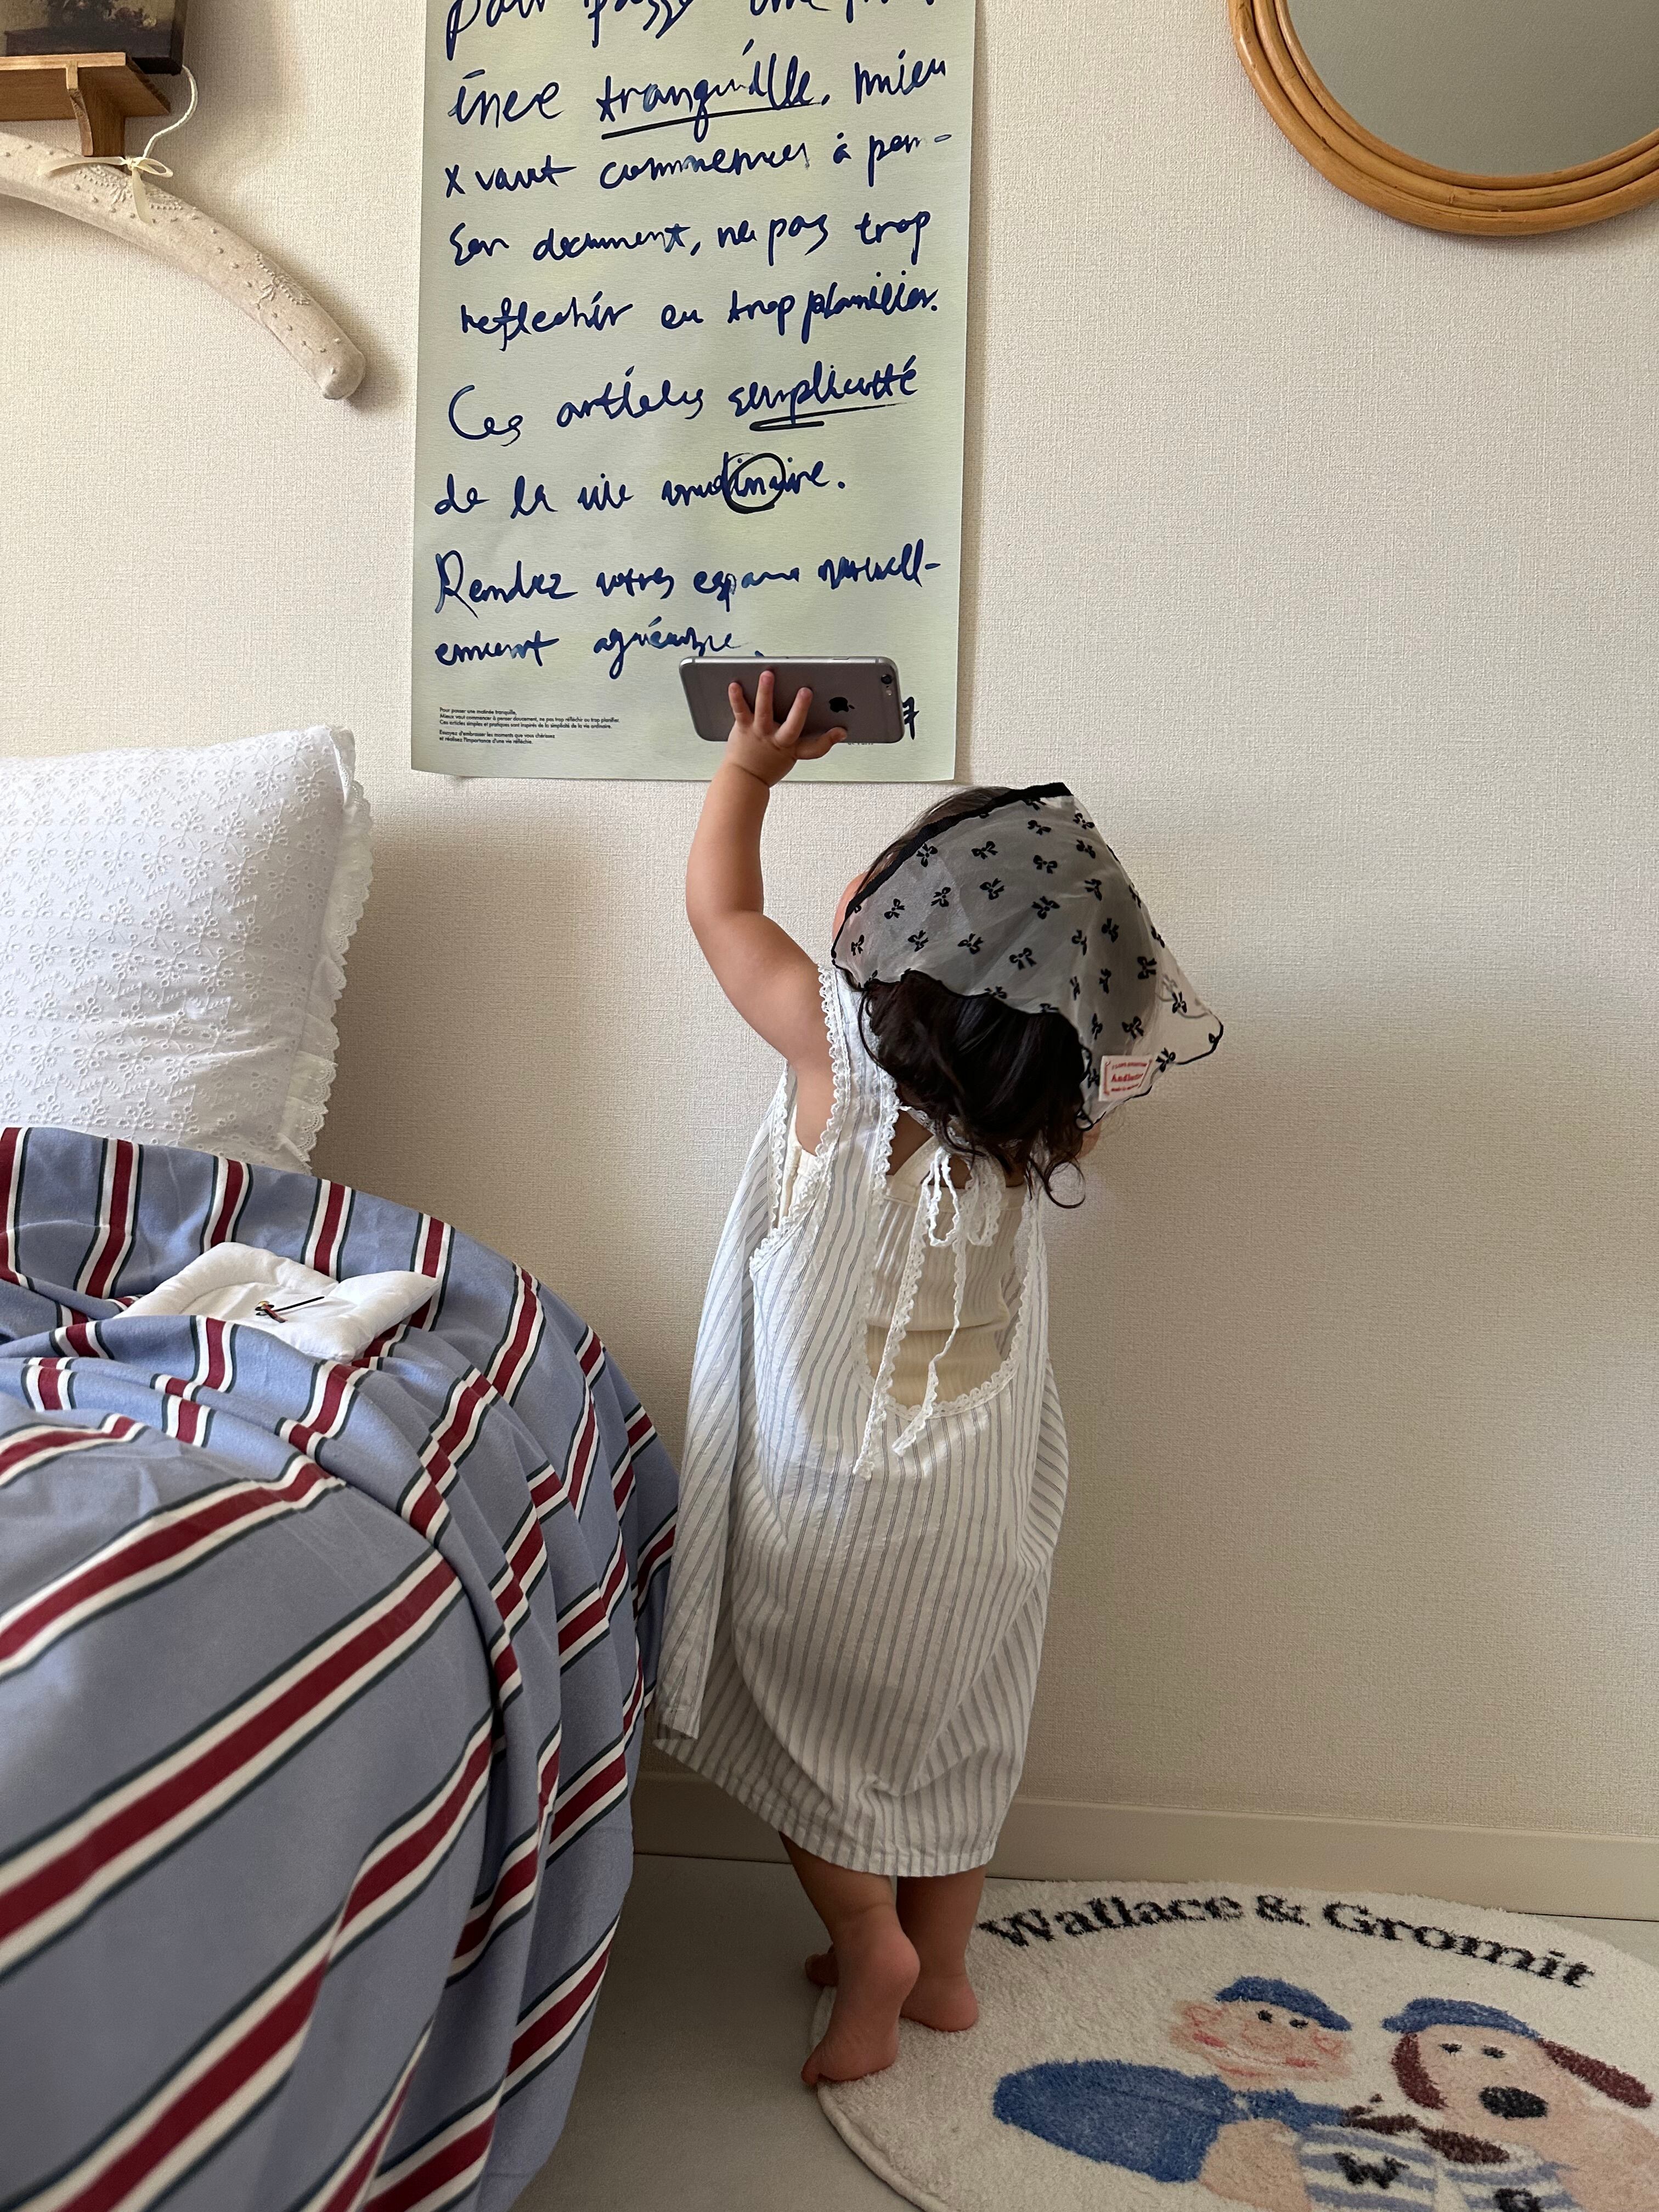 pour passer une mat
inée tranquille, mieu
x vaut commencer à pen-
ser doucement, ne pas trop
reflechir ou trop planifier.
Ces articles simplicité
de la vie ordinaire.
Rendez votre espace
ement agréable.
7
Pour passer une matinée tranquille,
Mieux vaut commencer à penser doucement, ne pas trop réfléchir ou trop planifier.
Ces articles simples et pratiques sont inspirés de la simplicité de la vie ordinaire.
Essayez d'embrasser les moments que vous chérissez
et réalisez l'importance d'une vie réfléchie.
Wallace & Gromit
W